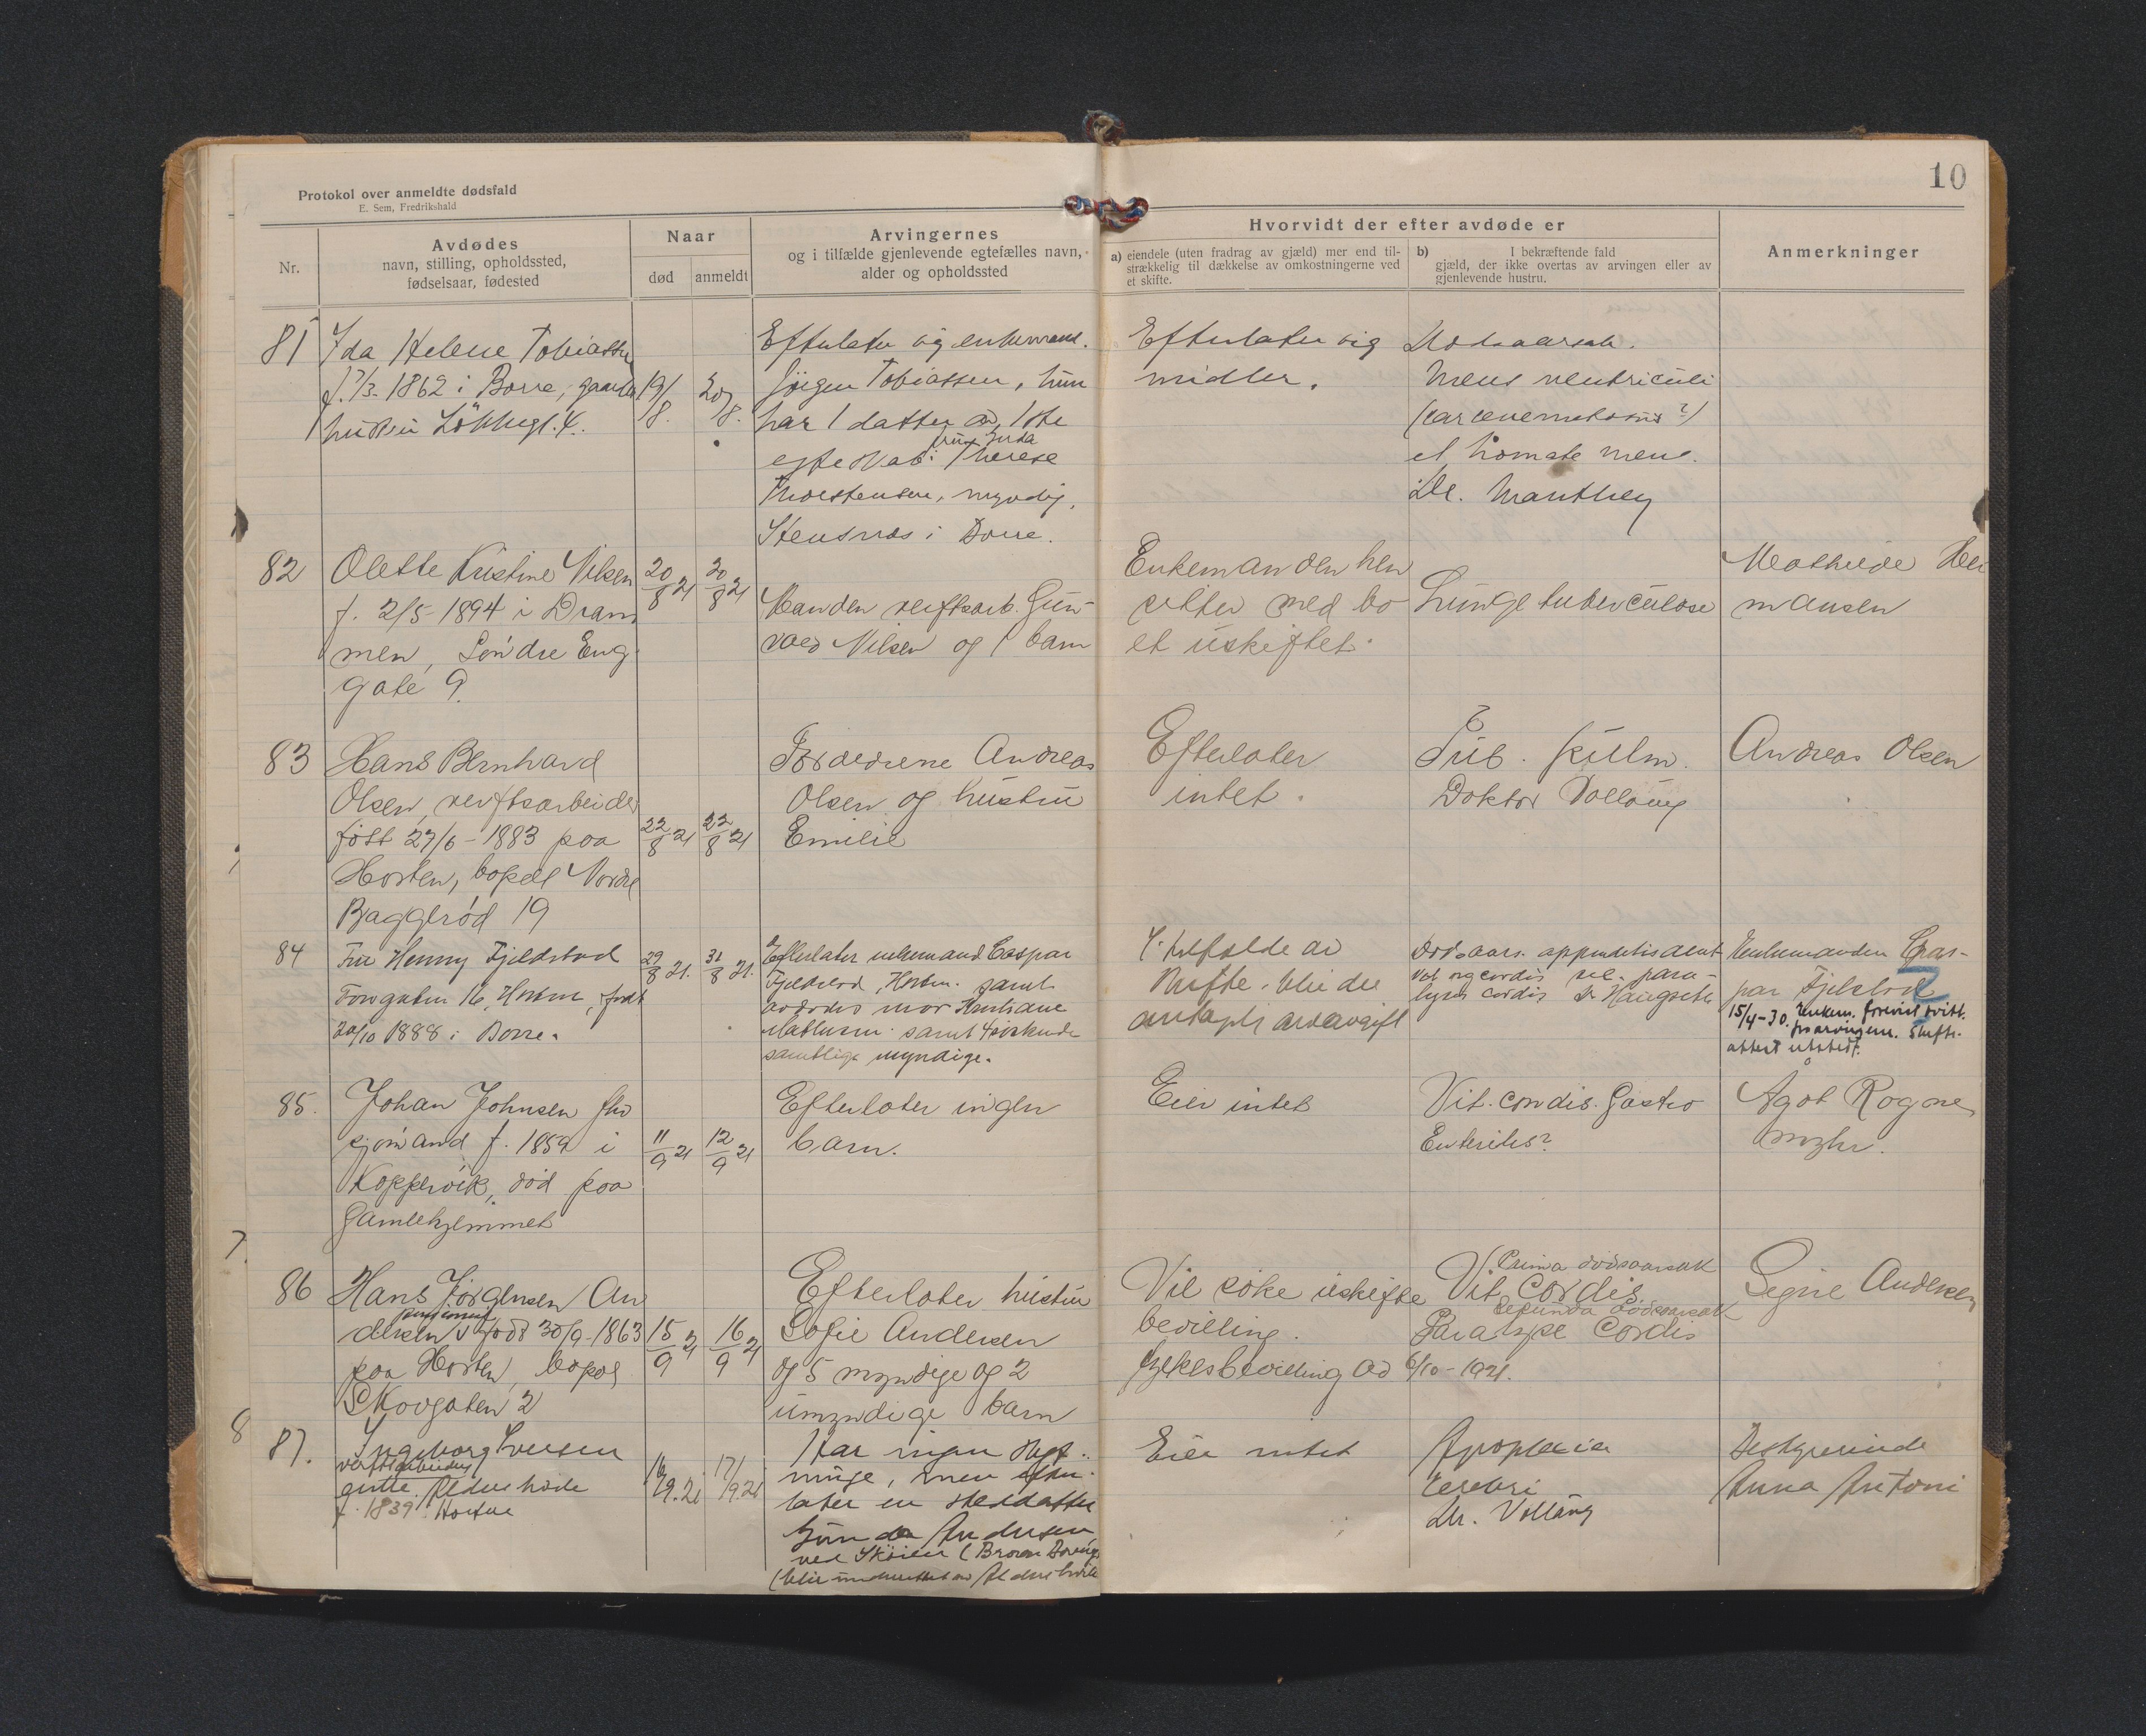 10
Protokol over anmeldte dødsfald
E. Sem, Fredrikshald
Nr.
Avdødes
navn, stilling, opholdssted,
fødselsaar, fødested
Naar
død
anmeldt
Arvingernes
og i tilfælde gjenlevende egtefælles navn,
alder og opholdssted
Hvorvidt der efter avdøde er
a) eiendele (uten fradrag av gjæld) mer end til-
strækkelig til dækkelse av omkostningerne ved
et skifte.
b) I bekræftende fald
gjæld, der ikke overtas av arvingen eller av
gjenlevende hustru.
Anmerkninger
81
Ida Helene Tobiassen
f. 7/3-1862 i Borre,
19/8.
20/8.
Efterlater sig enkemand.
Jörgen Tobiassen, hun
har 1 datter av 1ste
egteskab: fru Gerda Therese
Thorstensen, myndig,
Stensnes i Borre.
Efterlater sig
midler.
Dødsaarsak.
ventriculi
Dr. Manthey
82
Olette Kristine Nilsen
f. 2/5-1894 i Dram
men, Söndre Eng
gate 9.
20/8 21
20/8 21
Manden verftsarb. Gun-
vald Nilsen og 1 barn
Enkemanden hen
sitter med bo
et uskiftet.
Lungetuberculose
Mathilde Her
mansen
83
Hans Bernhard
Olsen, verftsarbeider
født 27/6-1883 paa
Horten, bopæl Nordre
Baggerød 19
22/8 21
22/8 21
Forældrene Andreas
Olsen og hustru
Emilie
Efterlater
intet.
Tub. pulm.
Doktor Vollaug
Andreas Olsen
84
Fru Henny Fjeldstad
16, Horten, født
20/10 1888 i Borre.
29/8 21.
31/8 21.
Efterlater enkemand Caspar
Fjeldstad, Horten. samt
avdødes mor Kristiane
Mathisen samt 4 söskende
samtlige myndige.
I tilfælde av
skifte, blir der
antagelig arveavgift
Dødsaars. appendicitis acut
Vit. org cordis para-
lysis cordis Dr
Enkemanden Cas-
par Fjeldstad
15/4-30. Enkem. forevist kvitt.
fra arvingerne. Skifte-
attest utstedt.
85.
Johan Johnsen fhv
sjömand f. 1859 i
Koppervik, død paa
Gamlehjemmet
11/9 21
12/9 21
Efterlater ingen
barn.
Eier intet
Vit. cordis. Gastro
Enteritis?
Ågot Rogne
86
Hans Jörgensen An
dersen, pensionist født 30/9-1863
paa Horten, bopæl
Skovgaten 2
15/9 21
16/9 21
Efterlater hustru
Sofie Andersen
og 5 myndige og 2
umyndige barn
Vil söke uskifte
bevilling.
Fylkesbevilling av 6/10-1921.
Prima dødsaarsak
Vit. cordis.
Secunda dødsaarsak
Paralyse Cordis
Signe Andersen
87.
Ingeborg Iversen
verftsarbeiders
Aldershvile
f. 1839. Horten
16/9.21
17/9.21
Har ingen slægt-
ninge, men efter-
later en steddatter
Andersen
ved Skøien
Aldershvile
Eier intet
Apoplexia
cerebri
Dr. Vollaug
Bestyrerinde
Anna Antoni
7.
8